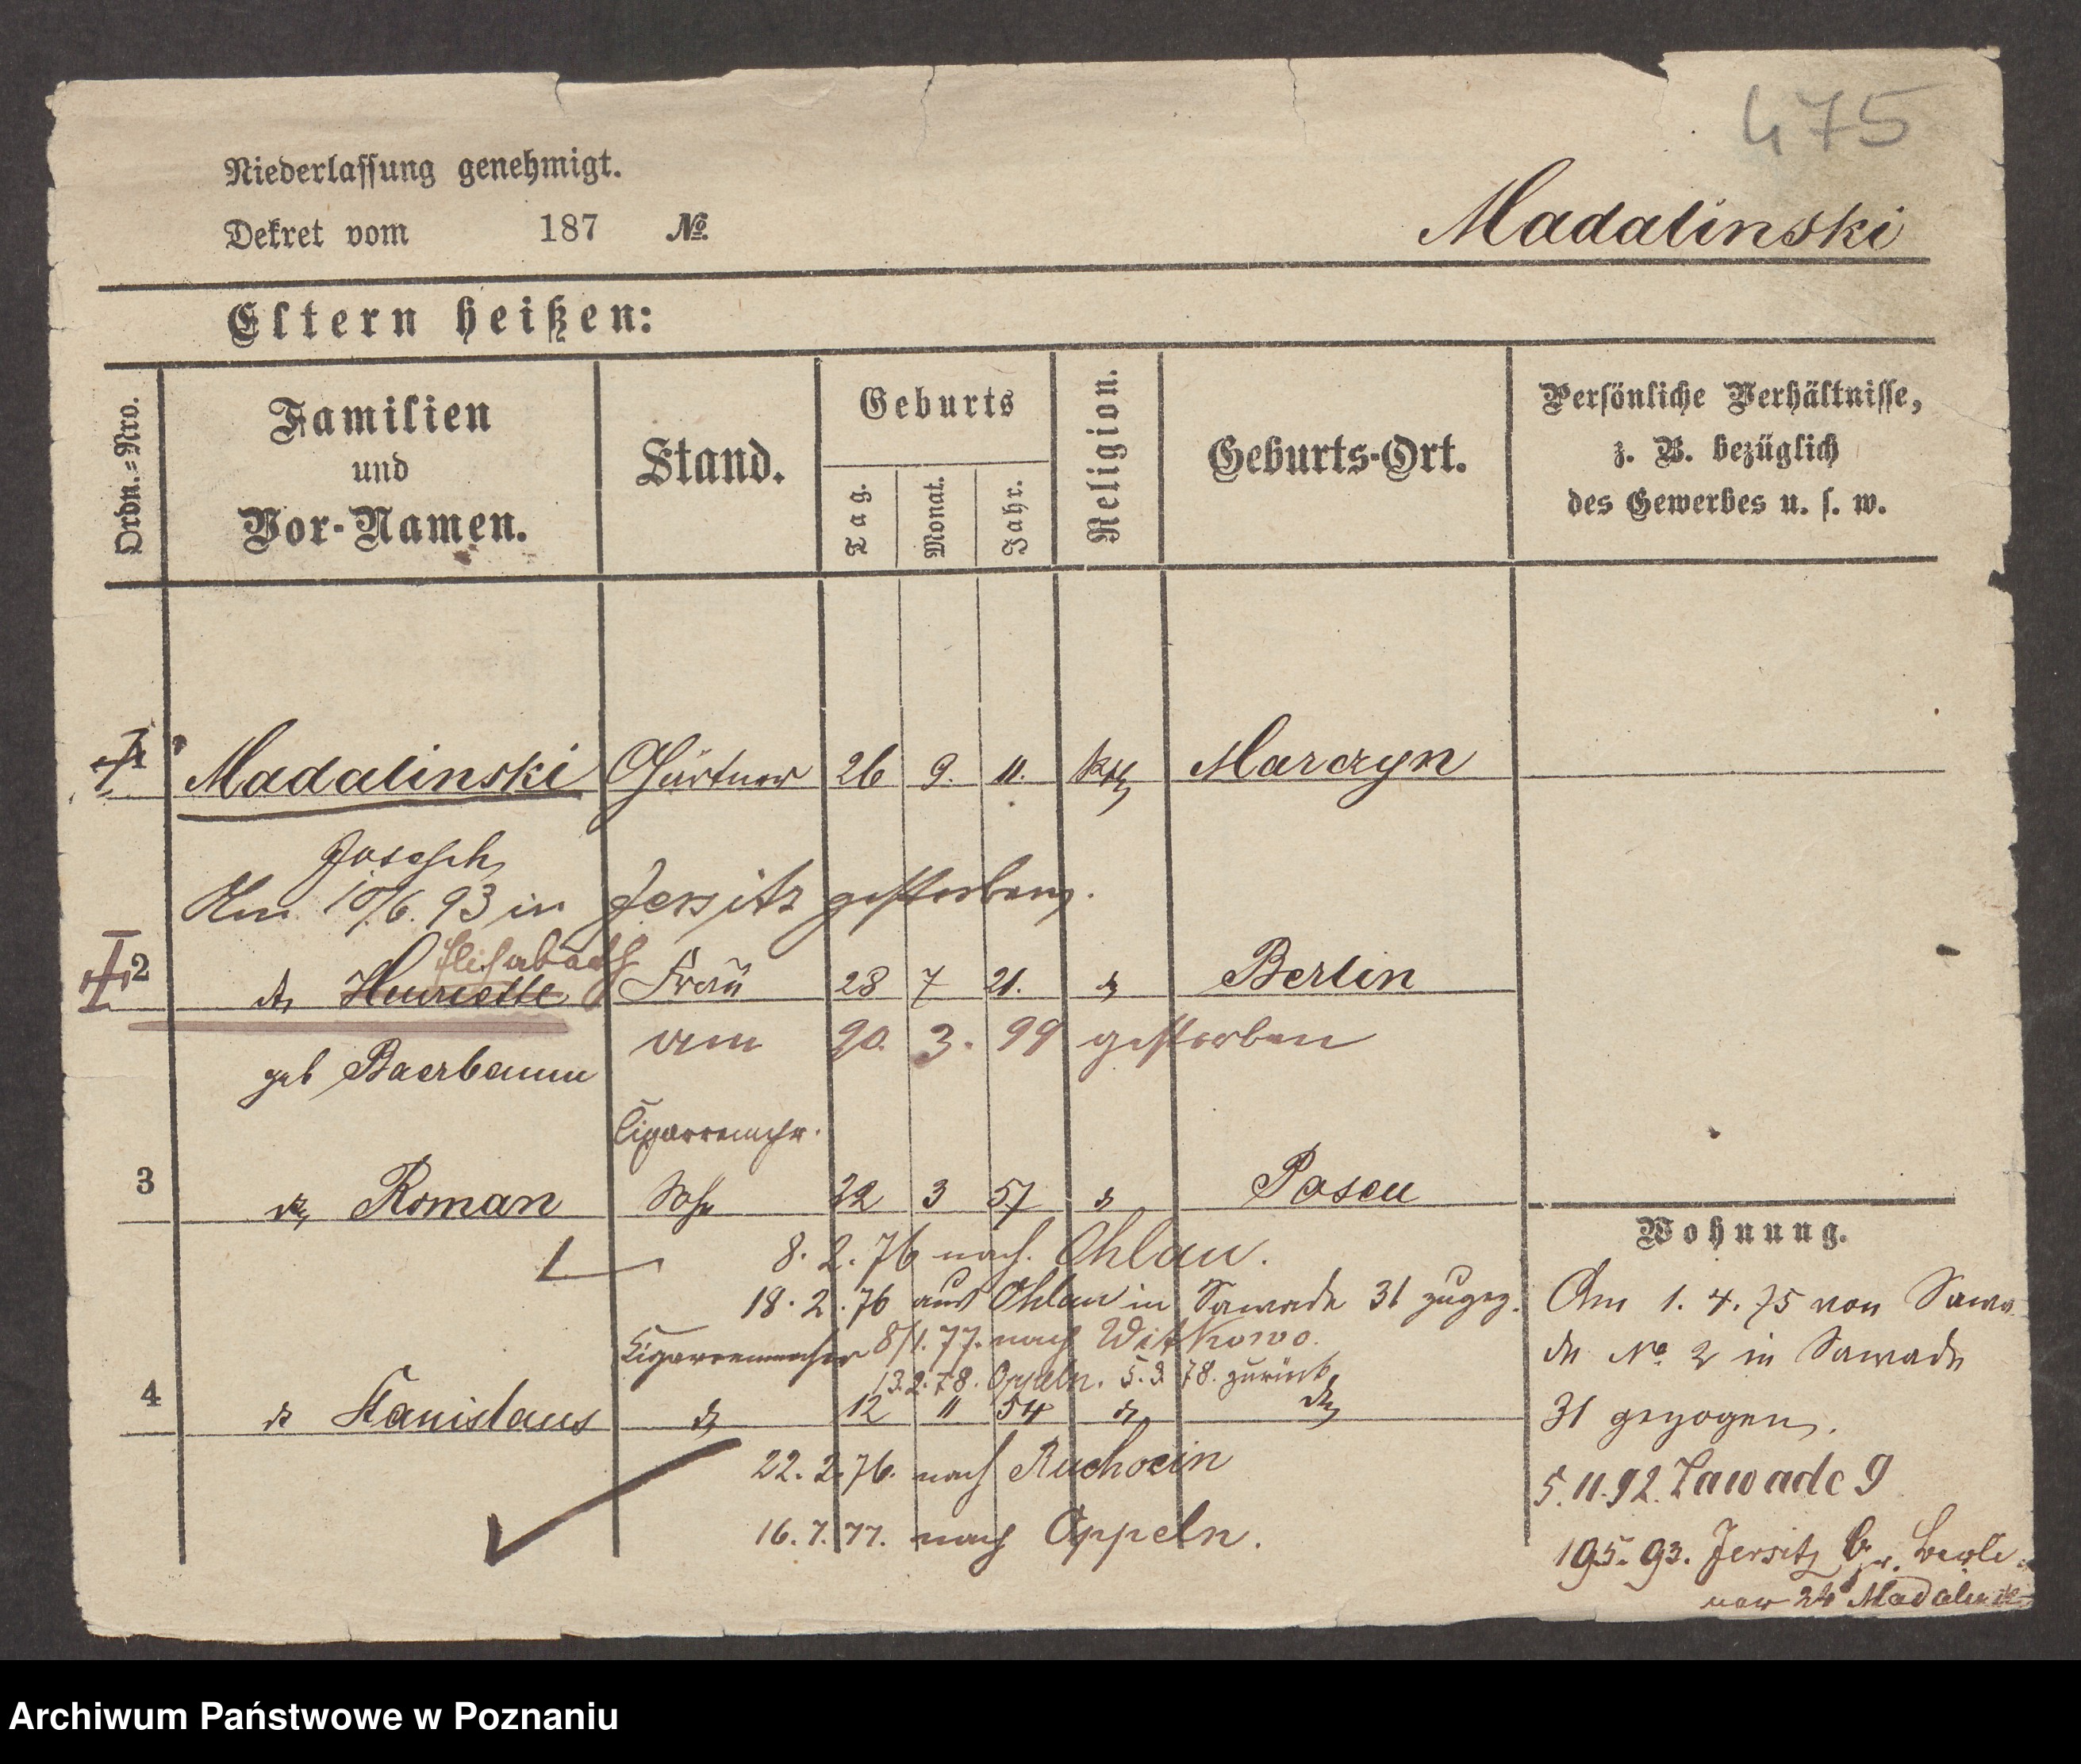 475
Niederlassung genehmigt.
Dekret vom 187 No.
Madalinski
Eltern heißen:
Ordn.=Nro.
Familien
und
Vor-Namen.
Stand.
Geburts
Tag.
Monat.
Jahr.
Religion.
Geburts-Ort.
Persönliche Verhältnisse,
z. B. bezüglich
des Gewerbes u. s. w.
1 Madalinski Gärtner 26 9. 11. kth Marczyn
Joseph
Am 10/6. 93 in Jersitz gestorben.
Elisabeth
2 do Henriette Frau 28 7 21. do Berlin
am 20. 3. 99 gestorben
geb Baerbaum
Cigarremchr.
3 do Roman Sohn 22 3 57 do Posen
8. 2. 76 nach Ohlau.
18. 2. 76 aus Ohlau in Sawade 31 zugez.
Cigarremacher 8/1. 77. nach Witkowo.
13.2.78. Oppeln. 5.3 78. zurück
4 do Stanislaus do 12 11 54 do do
22. 2. 76. nach Ruchocin
16. 7. 77. nach Oppeln.
Wohnung.
Am 1. 4. 75 von Sawa
de No. 2 in Sawade
31 gezogen.
5.11.92. Zawade 9
19.5. 93. Jersitz Gr. Berli
ner 24 Madalinski